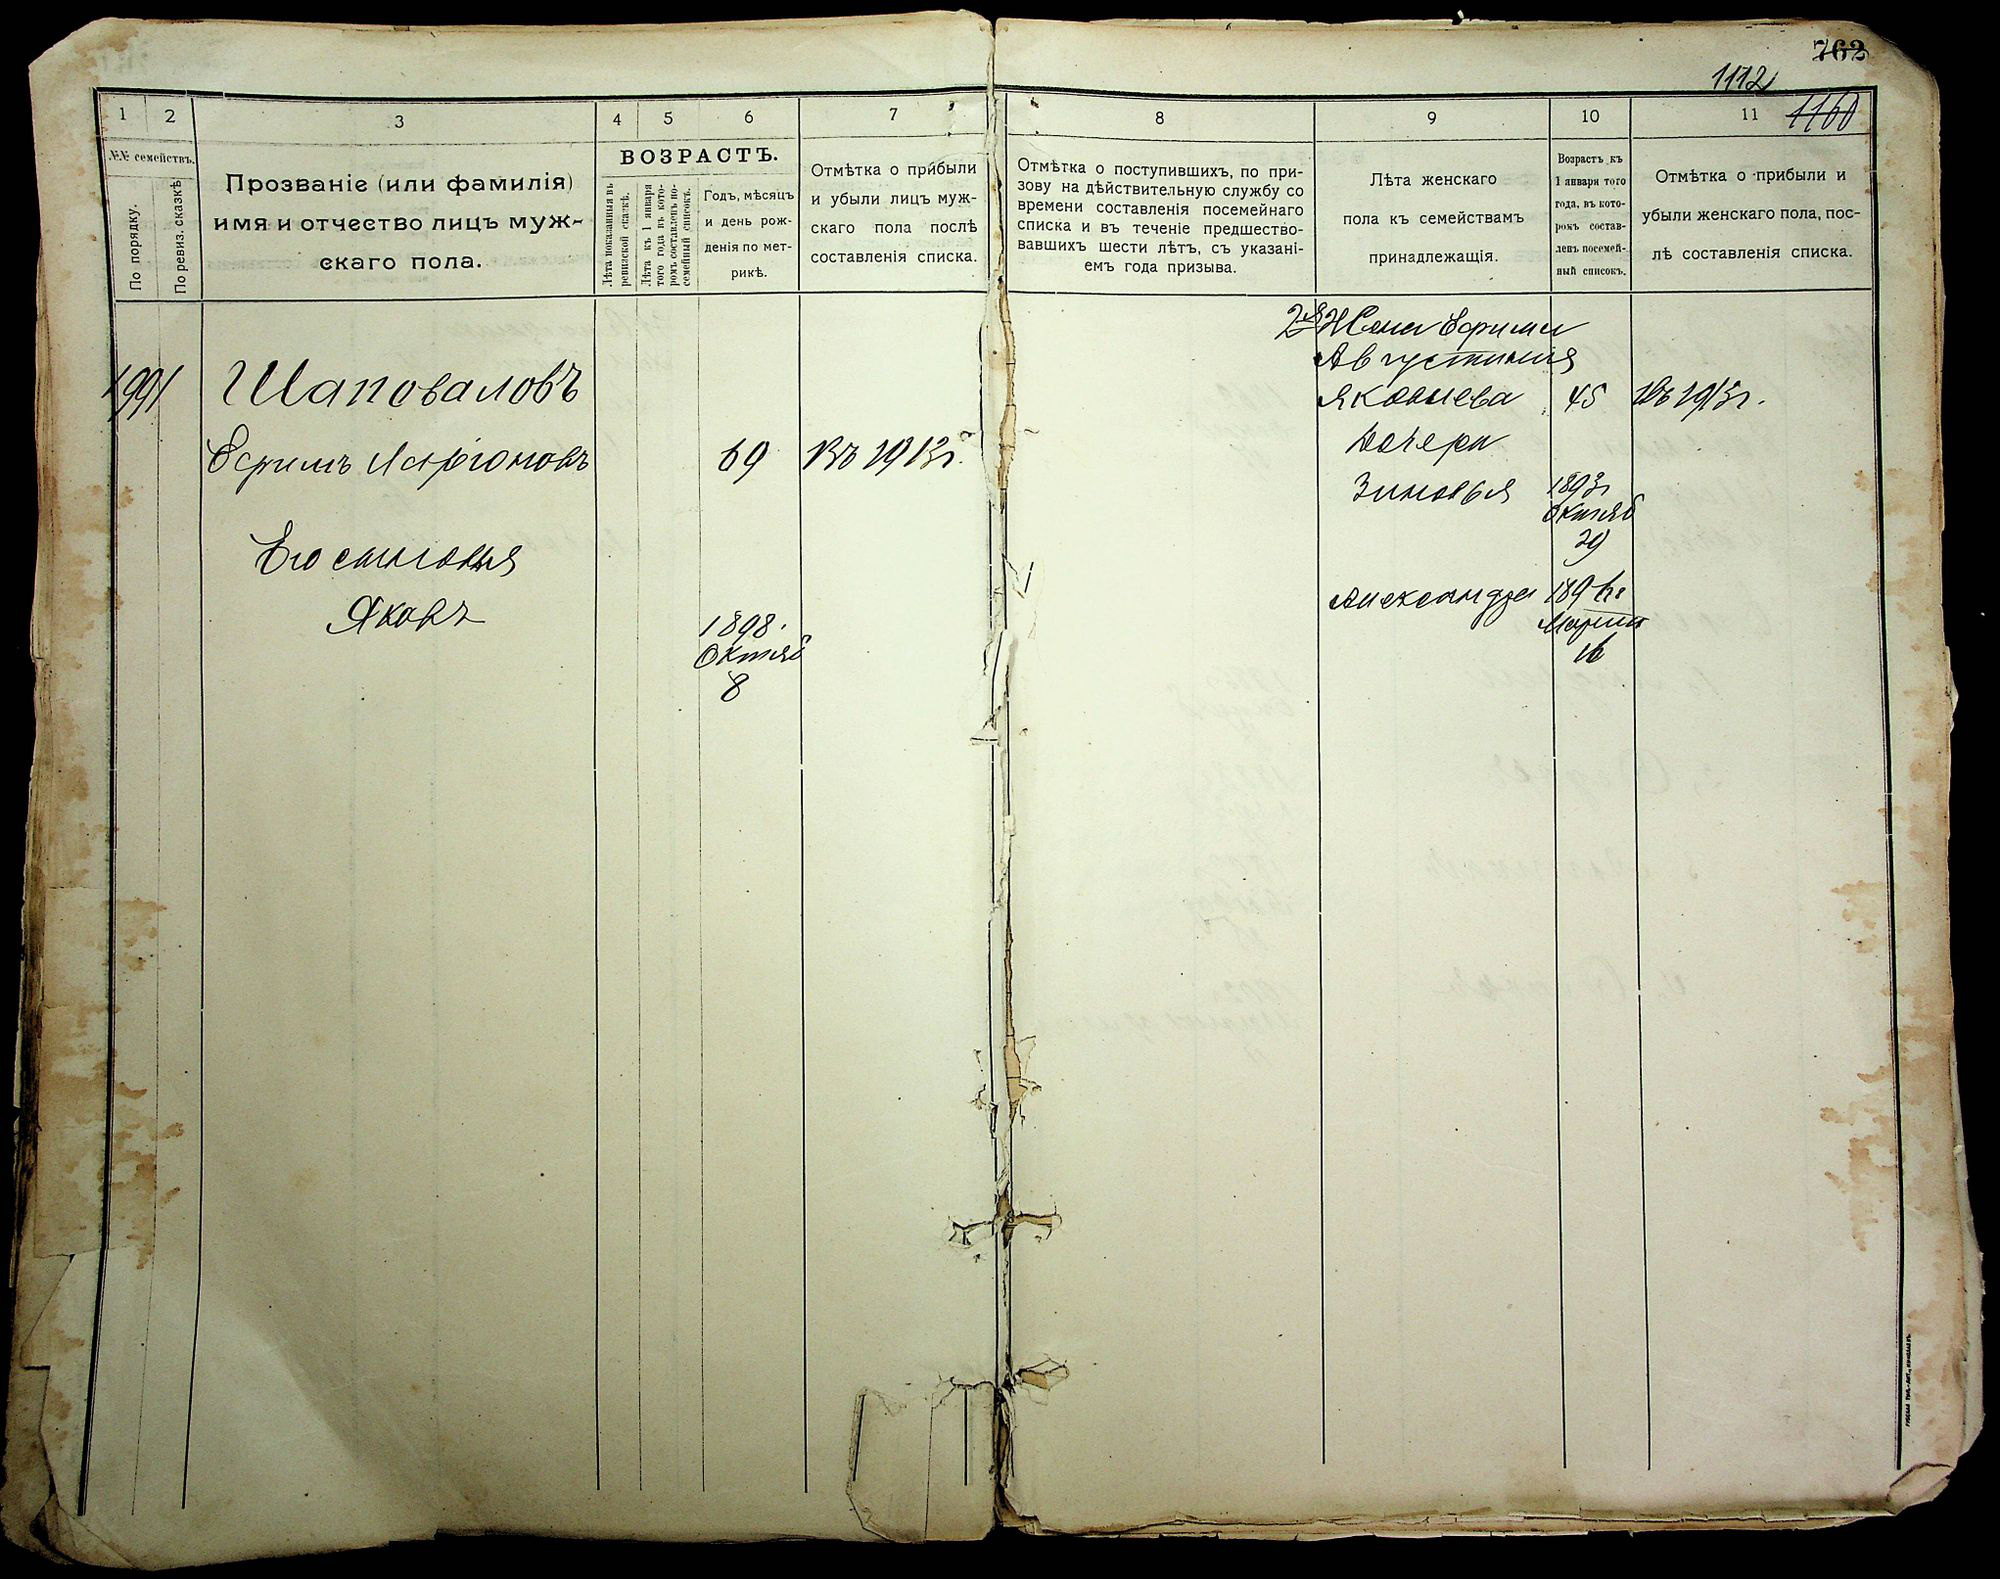 762
1112
1160
1
2
3
4
5
6
7
8
9
10
11
№№ семействъ.
По порядку.
По ревиз. сказкѣ
Прозваніе (или фамилія)
имя и отчество лицъ муж-
скаго пола.
ВОЗРАСТЪ.
Лѣта показанныя въ
ревизской сказкѣ.
Лѣта къ 1 января
того года въ кото-
ромъ составленъ по-
семейный списокъ.
Годъ, мѣсяцъ
и день рож-
денія по мет-
рикѣ.
Отмѣтка о прибыли
и убыли лицъ муж-
скаго пола послѣ
составленія списка.
Отмѣтка о поступившихъ, по при-
зову на дѣйствительную службу со
времени составленія посемейнаго
списка и въ теченіе предшество-
вавшихъ шести лѣтъ, съ указані-
емъ года призыва.
Лѣта женскаго
пола къ семействамъ
принадлежащія.
Возрастъ къ
1 января того
года, въ кото-
ромъ состав-
ленъ посемей-
ный списокъ.
Отмѣтка о прибыли и
убыли женскаго пола, пос-
лѣ составленія списка.
1991
Шаповаловъ
Ефимъ Ларіоновъ 69 Въ 1913г.
Его сыновья
Яковъ
1898.
Октяб
8
2я Жена Ефима
Августинія
Яковлева 45 Въ 1913г.
Дочери
Зиновья 1893г
Октяб
29
Александра 1896г
Марта
16